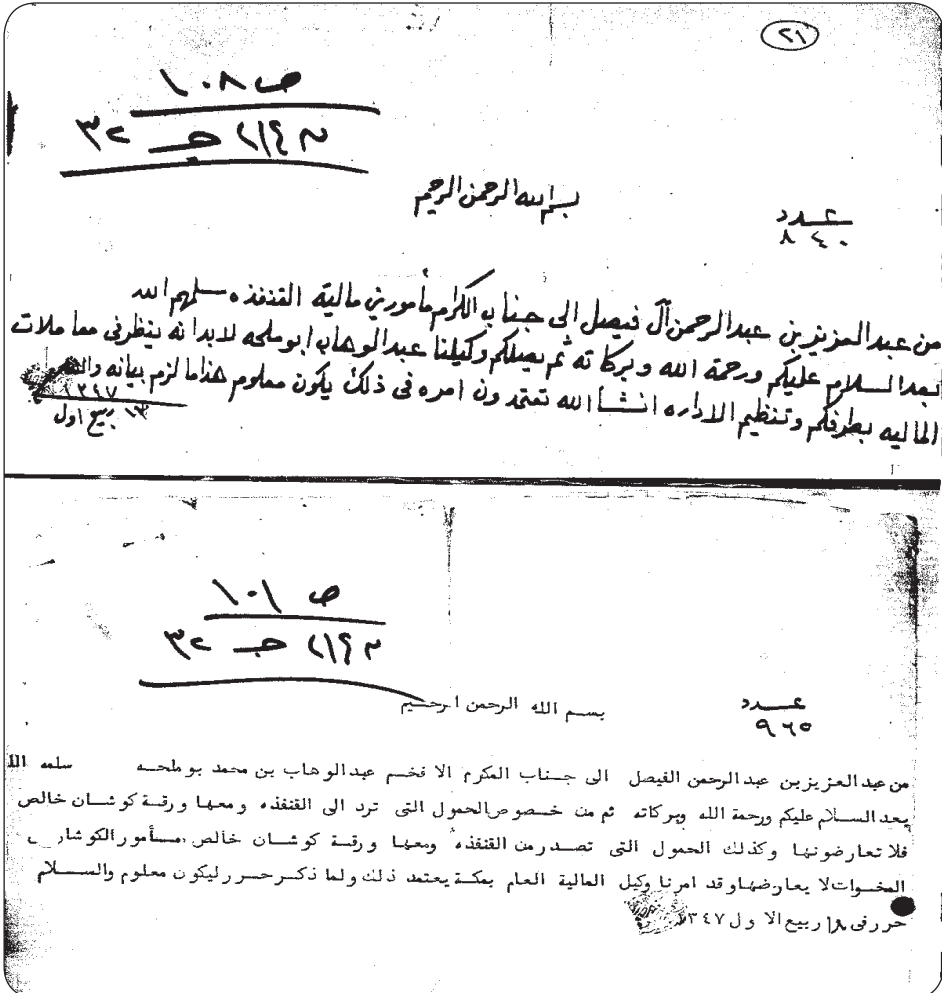 ٢١
ص ١٠٨
٢١٤٢ ج ٣٢
بسم الله الرحمن الرحيم
عدد
٨٤٠
من عبد العزيز بن عبد الرحمن آل فيصل الى جناب الكرام مأمورين مالية القنفذه سلمهم الله
بعد السلام عليكم ورحمة الله وبركاته ثم يصلكم وكيلنا عبد الوهاب ابو ملحه لابد انه ينظر في معاملات
الماليه بطرفكم وتنظيم الاداره انشأ الله تعتمدون امره في ذلك يكون معلوم هذا ما لزم بيانه
١٣٤٧
١٣ ربيع اول
ص ١٠١
ج ٣٢
بسم الله الرحمن الرحيم
عدد
٩٦٥
من عبد العزيز بن عبد الرحمن الفيصل الى جناب المكرم الافخم عبد الوهاب بن محمد بو ملحه سلمه الله
بعد السلام عليكم ورحمة الله وبركاته ثم من خصوص الحمول التى ترد الى القنفذه ومعها ورقة كوشان خالص
فلا تعارضونها وكذلك الحمول التى تصدر من القنفذه ومعها ورقة كوشان خالص مأمور
المخوات لا يعارضها وقد امرنا وكيل المالية العام بمكة يعتمد ذلك ولما ذكر حرر ليكون معلوم والسلام
حرر فى ١٨ ربيع الاول ١٣٤٧